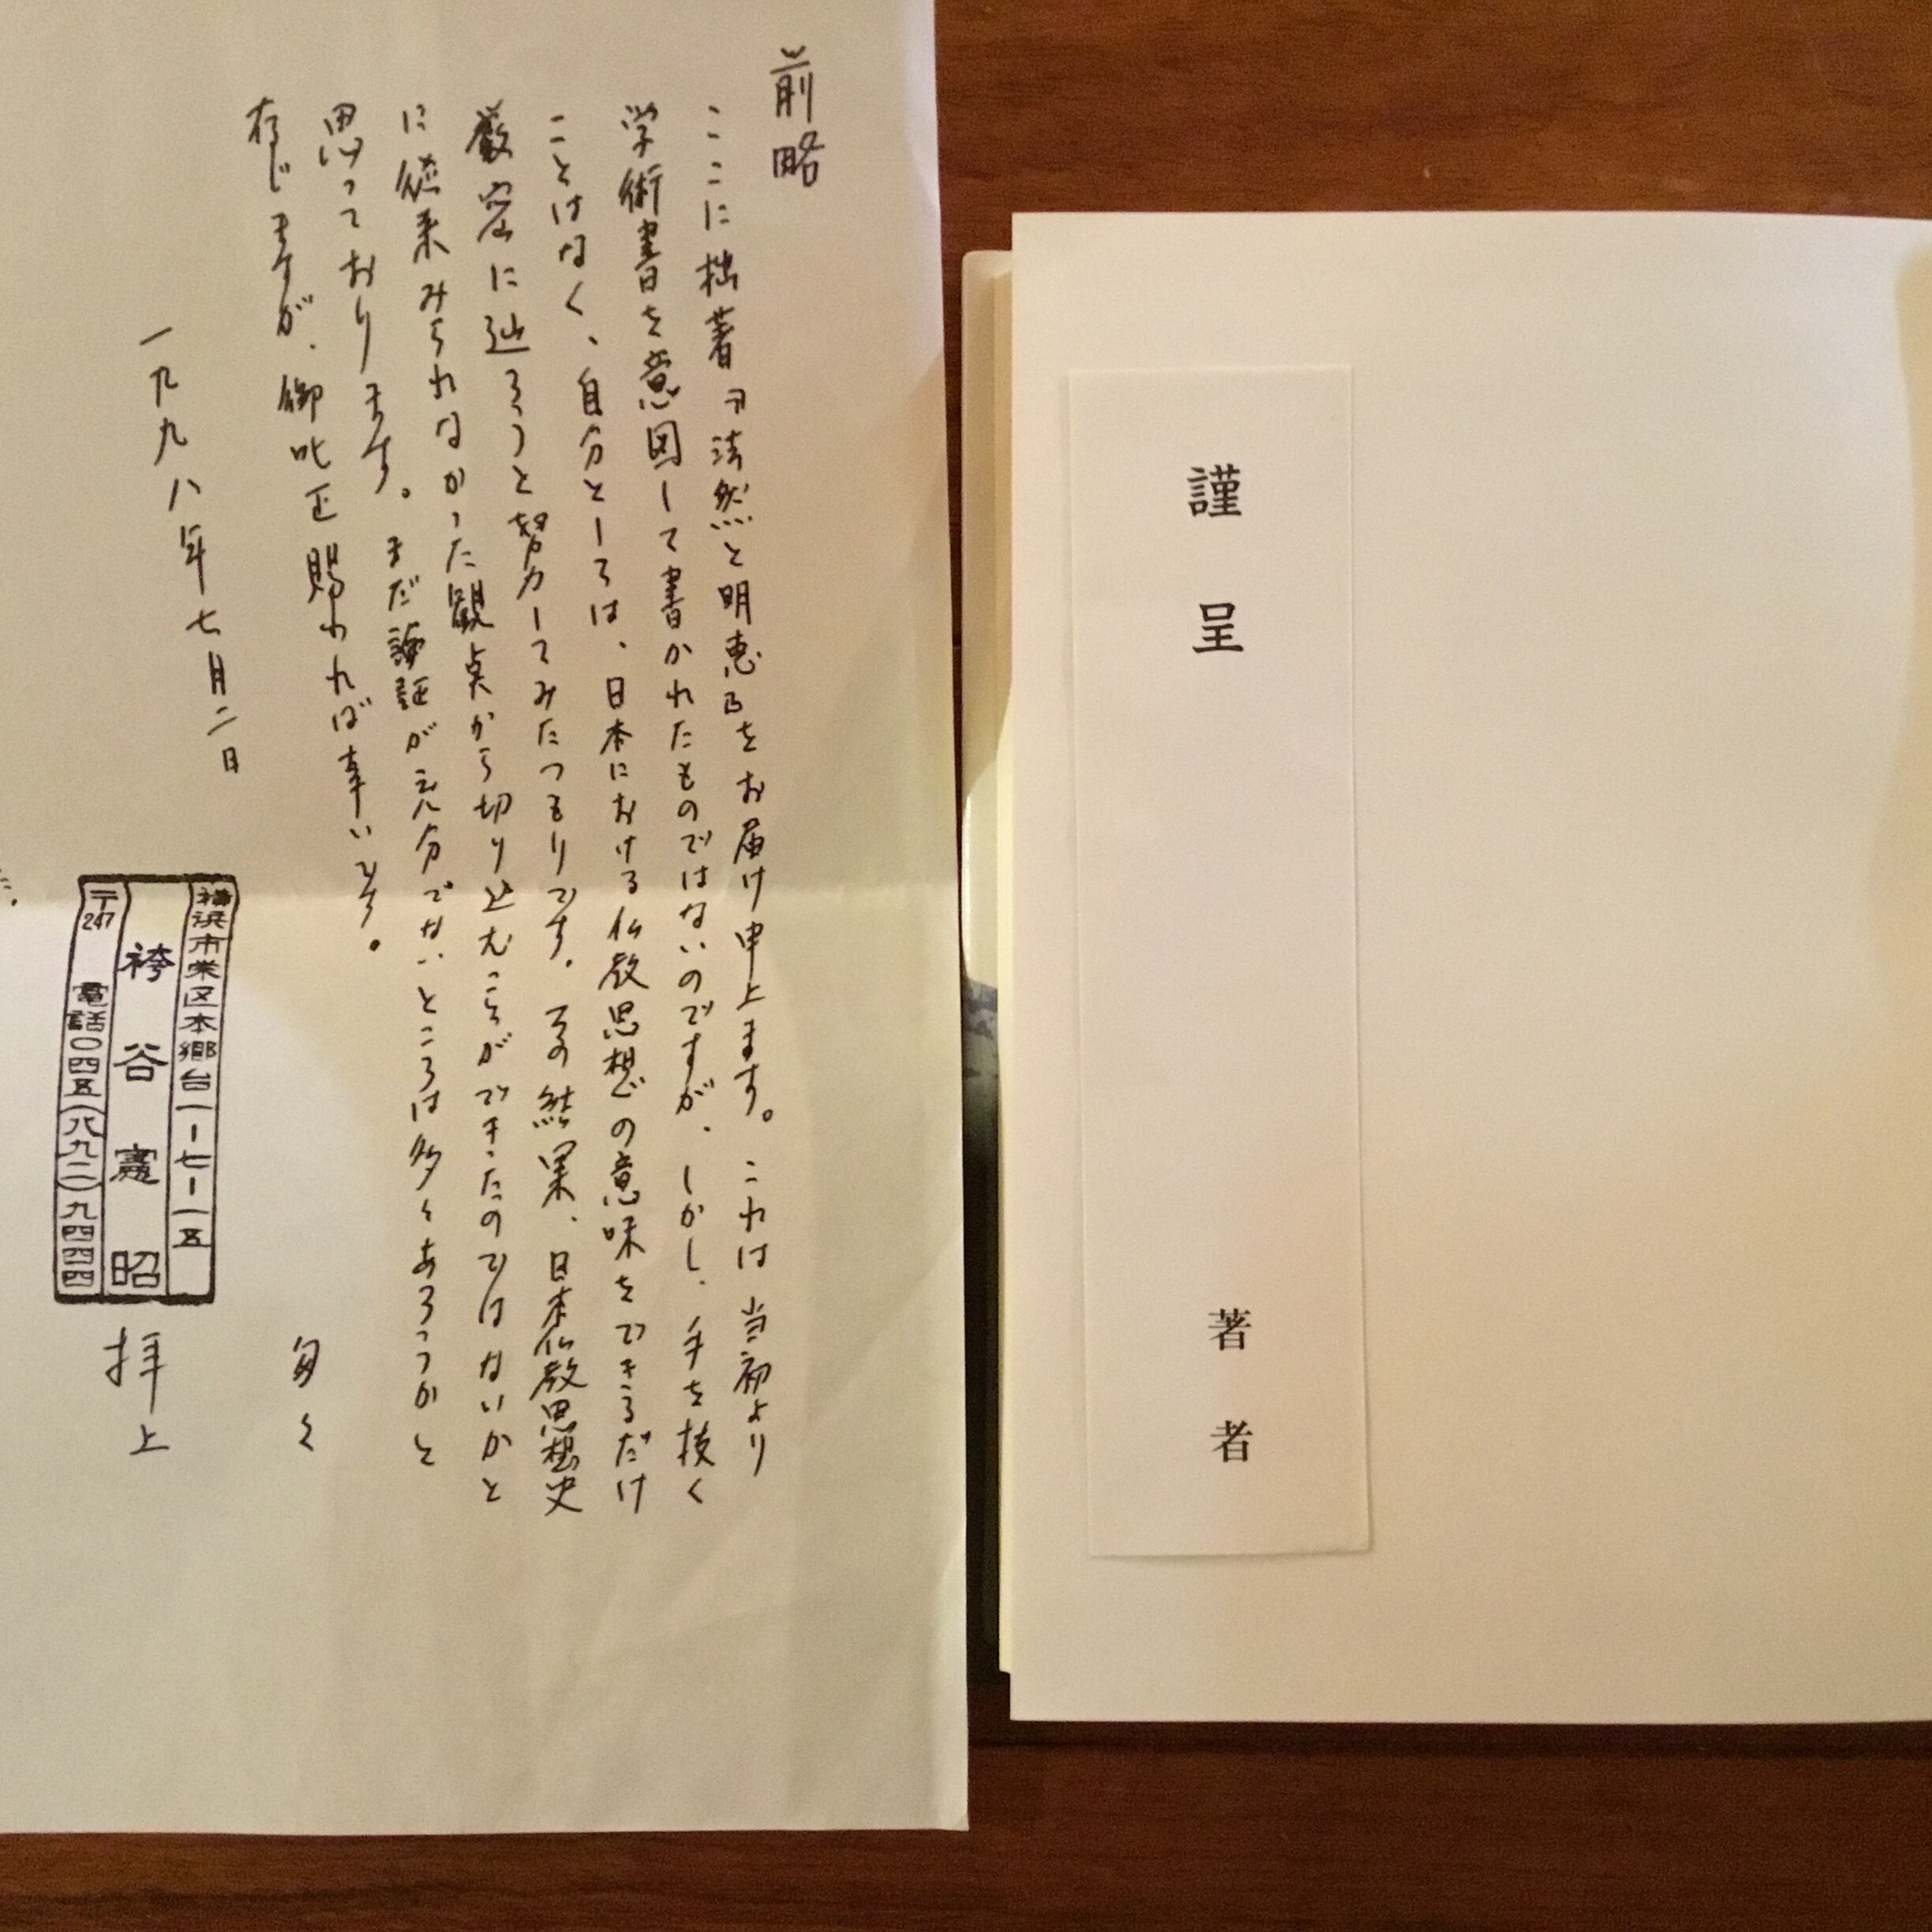 謹呈
著者
前略
ここに拙著『法然と明恵』をお届け申上ます。これは当初より
学術書を意図して書かれたものではないのですが、しかし、手を抜く
ことはなく、自分としては、日本における仏教思想の意味をできるだけ
厳密に辿ろうと努力してみたつもりです。その結果、日本仏教思想史
に従来みられなかった観点から切り込むことができたのではないかと
思っております。まだ論証が充分でないところは多々あろうかと
存じますが、御叱正賜われば幸いです。
匆々
一九九八年七月二日
横浜市栄区本郷台一ー七ー一五
袴谷憲昭
〒247 電話〇四五(八九二)九四四四
拝上